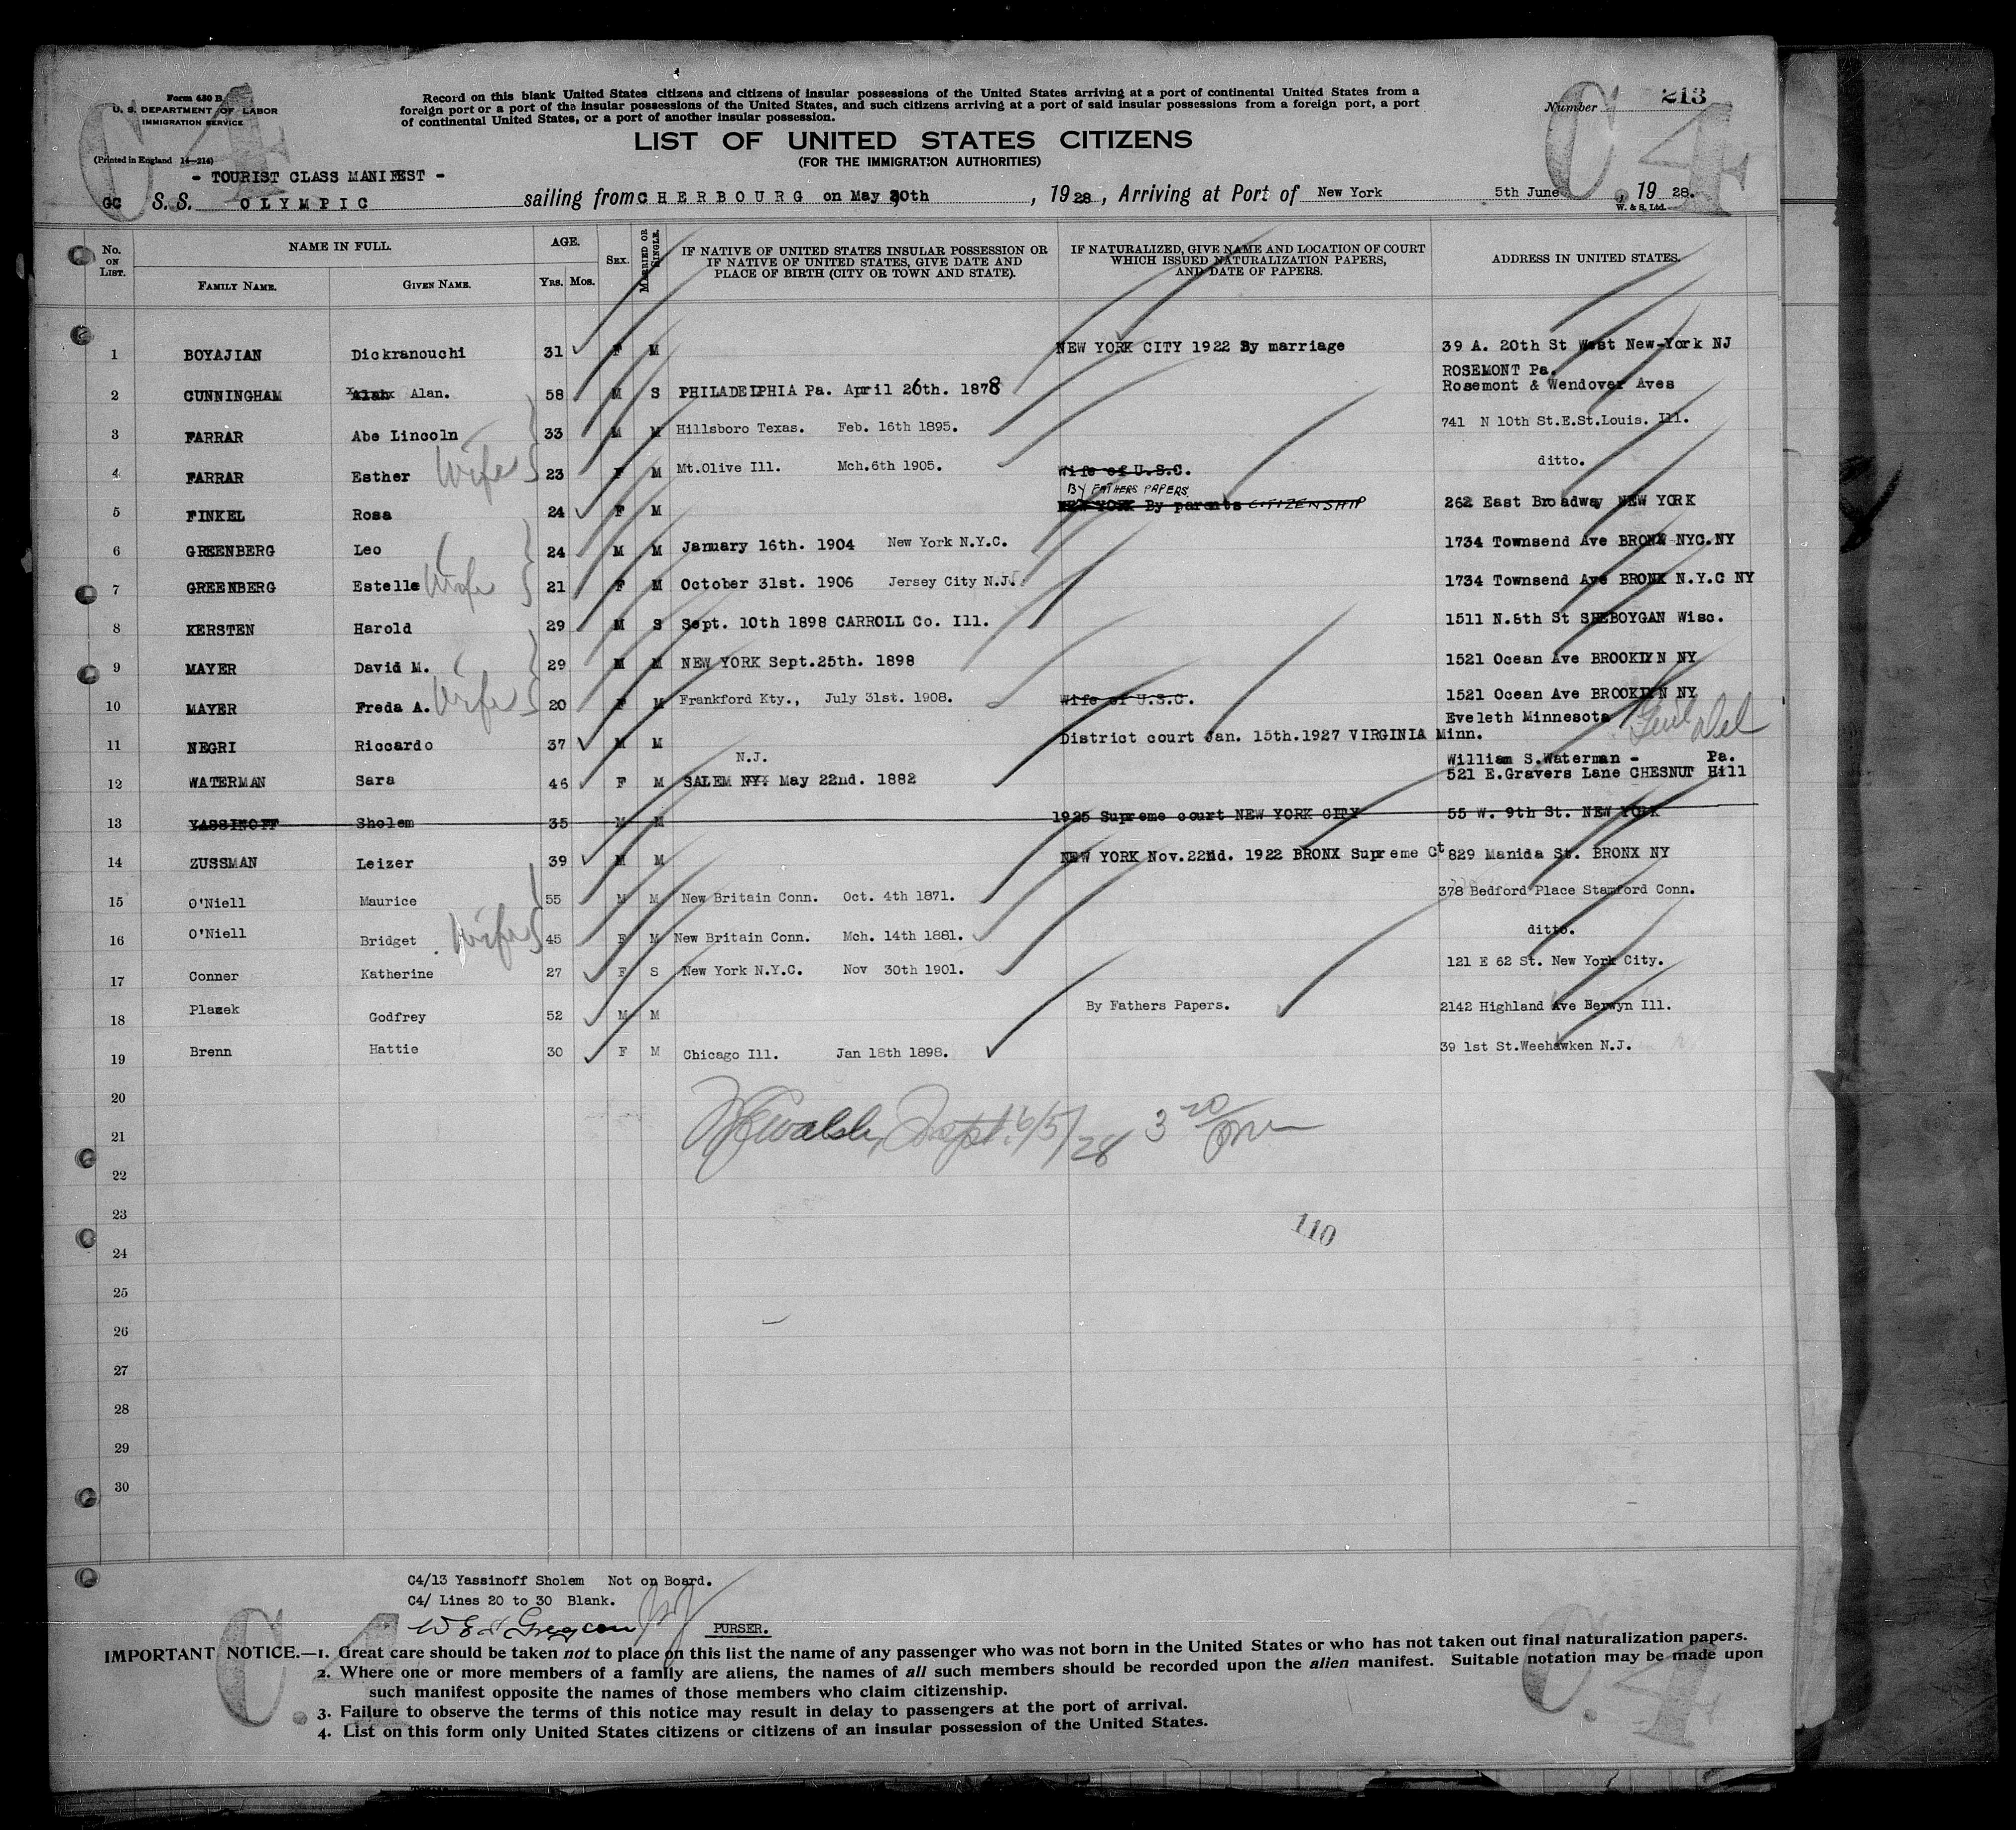 Form 630 B
U. S. DEPARTMENT OF LABOR
IMMIGRATION SERVICE
(Printed in England 14—214)
Record on this blank United States citizens and citizens of insular possessions of the United States arriving at a port of continental United States from a
foreign port or a port of the insular possessions of the United States, and such citizens arriving at a port of said insular possessions from a foreign port, a port
of continental United States, or a port of another insular possession.
Number 213
C4 C4
LIST OF UNITED STATES CITIZENS
(FOR THE IMMIGRATION AUTHORITIES)
- TOURIST CLASS MANIFEST -
GC S. S. OLYMPIC sailing from CHERBOURG on May 30th, 1928, Arriving at Port of New York 5th June, 1928.
W. & S. Ltd.
No. ON LIST. NAME IN FULL. AGE. SEX. MARRIED OR SINGLE. IF NATIVE OF UNITED STATES INSULAR POSSESSION OR IF NATIVE OF UNITED STATES, GIVE DATE AND PLACE OF BIRTH (CITY OR TOWN AND STATE). IF NATURALIZED, GIVE NAME AND LOCATION OF COURT WHICH ISSUED NATURALIZATION PAPERS, AND DATE OF PAPERS. ADDRESS IN UNITED STATES.
FAMILY NAME. GIVEN NAME. YRS. MOS.
1 BOYAJIAN Dickranouchi 31 F M NEW YORK CITY 1922 By marriage 39 A. 20th St West New-York NJ
2 CUNNINGHAM Alan. 58 M S PHILADELPHIA Pa. April 26th. 1878 ROSEMONT Pa. Rosemont & Wendover Aves
3 FARRAR Abe Lincoln 33 M M Hillsboro Texas. Feb. 16th 1895. 741 N 10th St.E.St.Louis. Ill.
4 FARRAR Esther Wife 23 F M Mt.Olive Ill. Mch.6th 1905. Wife of U.S.C. ditto.
BY FATHERS PAPERS
5 FINKEL Rosa 24 F M NEW YORK By parents CITIZENSHIP 262 East Broadway NEW YORK
6 GREENBERG Leo 24 M M January 16th. 1904 New York N.Y.C. 1734 Townsend Ave BRONX NYC.NY
7 GREENBERG Estelle Wife 21 F M October 31st. 1906 Jersey City N.J. 1734 Townsend Ave BRONX N.Y.C NY
8 KERSTEN Harold 29 M S Sept. 10th 1898 CARROLL Co. Ill. 1511 N.8th St SHEBOYGAN Wisc.
9 MAYER David M. 29 M M NEW YORK Sept.25th. 1898 1521 Ocean Ave BROOKLYN NY
10 MAYER Freda A. Wife 20 F M Frankford Kty., July 31st. 1908. Wife of U.S.C. 1521 Ocean Ave BROOKLYN NY
Eveleth Minnesota
11 NEGRI Riccardo 37 M M District court Jan. 15th.1927 VIRGINIA Minn.
N.J. William S.Waterman - Pa.
12 WATERMAN Sara 46 F M SALEM NY. May 22nd. 1882 521 E.Gravers Lane CHESNUT Hill
13 YASSINOFF Sholem 35 M M 1925 Supreme court NEW YORK CITY 55 W. 9th St. NEW YORK
14 ZUSSMAN Leizer 39 M M NEW YORK Nov.22nd. 1922 BRONX Supreme Ct 829 Manida St. BRONX NY
15 O'Niell Maurice 55 M M New Britain Conn. Oct. 4th 1871. 378 Bedford Place Stamford Conn.
16 O'Niell Bridget Wife 45 F M New Britain Conn. Mch. 14th 1881. ditto.
17 Conner Katherine 27 F S New York N.Y.C. Nov 30th 1901. 121 E 62 St. New York City.
18 Plazek Godfrey 52 M M By Fathers Papers. 2142 Highland Ave Berwyn Ill.
19 Brenn Hattie 30 F M Chicago Ill. Jan 18th 1898. 39 1st St.Weehawken N.J.
20
21 Walsh, Inspt. 6/5/28 3 20
22
23 110
24
25
26
27
28
29
30
C4/13 Yassinoff Sholem Not on Board.
C4/ Lines 20 to 30 Blank.
PURSER.
IMPORTANT NOTICE.—1. Great care should be taken not to place on this list the name of any passenger who was not born in the United States or who has not taken out final naturalization papers.
2. Where one or more members of a family are aliens, the names of all such members should be recorded upon the alien manifest. Suitable notation may be made upon
such manifest opposite the names of those members who claim citizenship.
3. Failure to observe the terms of this notice may result in delay to passengers at the port of arrival.
4. List on this form only United States citizens or citizens of an insular possession of the United States.
C.4 C.4